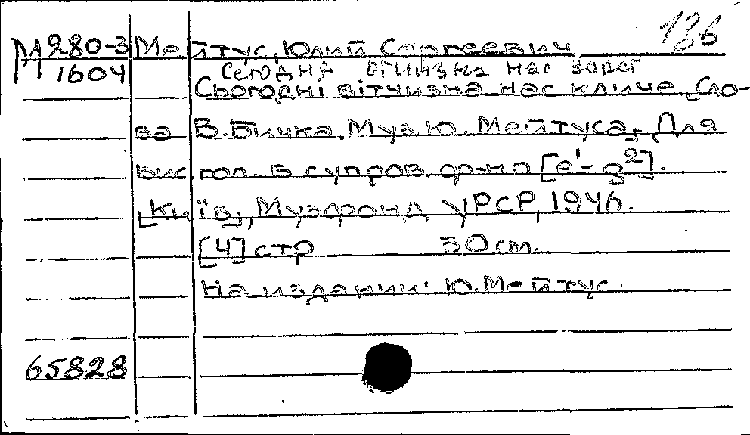 136
М280-3 Мейтус, Юлий Сергеевич
1604 Сегодня отчизна нас зовет
Сьогодні вітчизна нас кличе. Сло-
ва В. Бичка. Муз. Ю. Мейтуса. Для
вис. гол. в супров. ф-но [e¹-g²].
[Київ], Музфонд УРСР, 1946.
[4] стр 30 cm.
На издании: Ю. Мейтус.
65828